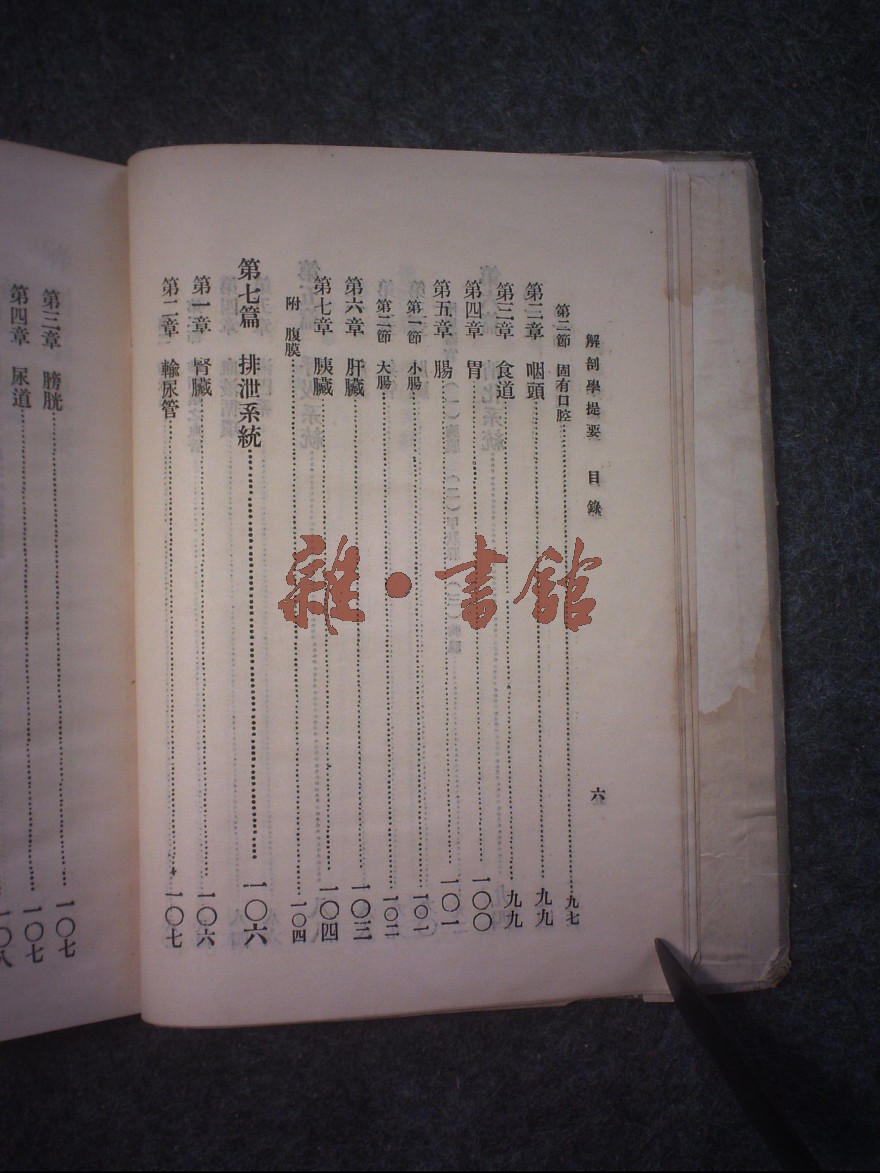 解剖學提要　目錄
六
第二節　固有口腔……九七
第二章　咽頭……九九
第三章　食道……九九
第四章　胃……一〇〇
第五章　腸……一〇一
第一節　小腸……一〇一
第二節　大腸……一〇二
第六章　肝臟……一〇三
第七章　胰臟……一〇四
附　腹膜……一〇四
第七篇　排泄系統……一〇六
第一章　腎臟……一〇六
第二章　輸尿管……一〇七
第三章　膀胱……一〇七
第四章　尿道……一〇七
一〇八
雜·書館